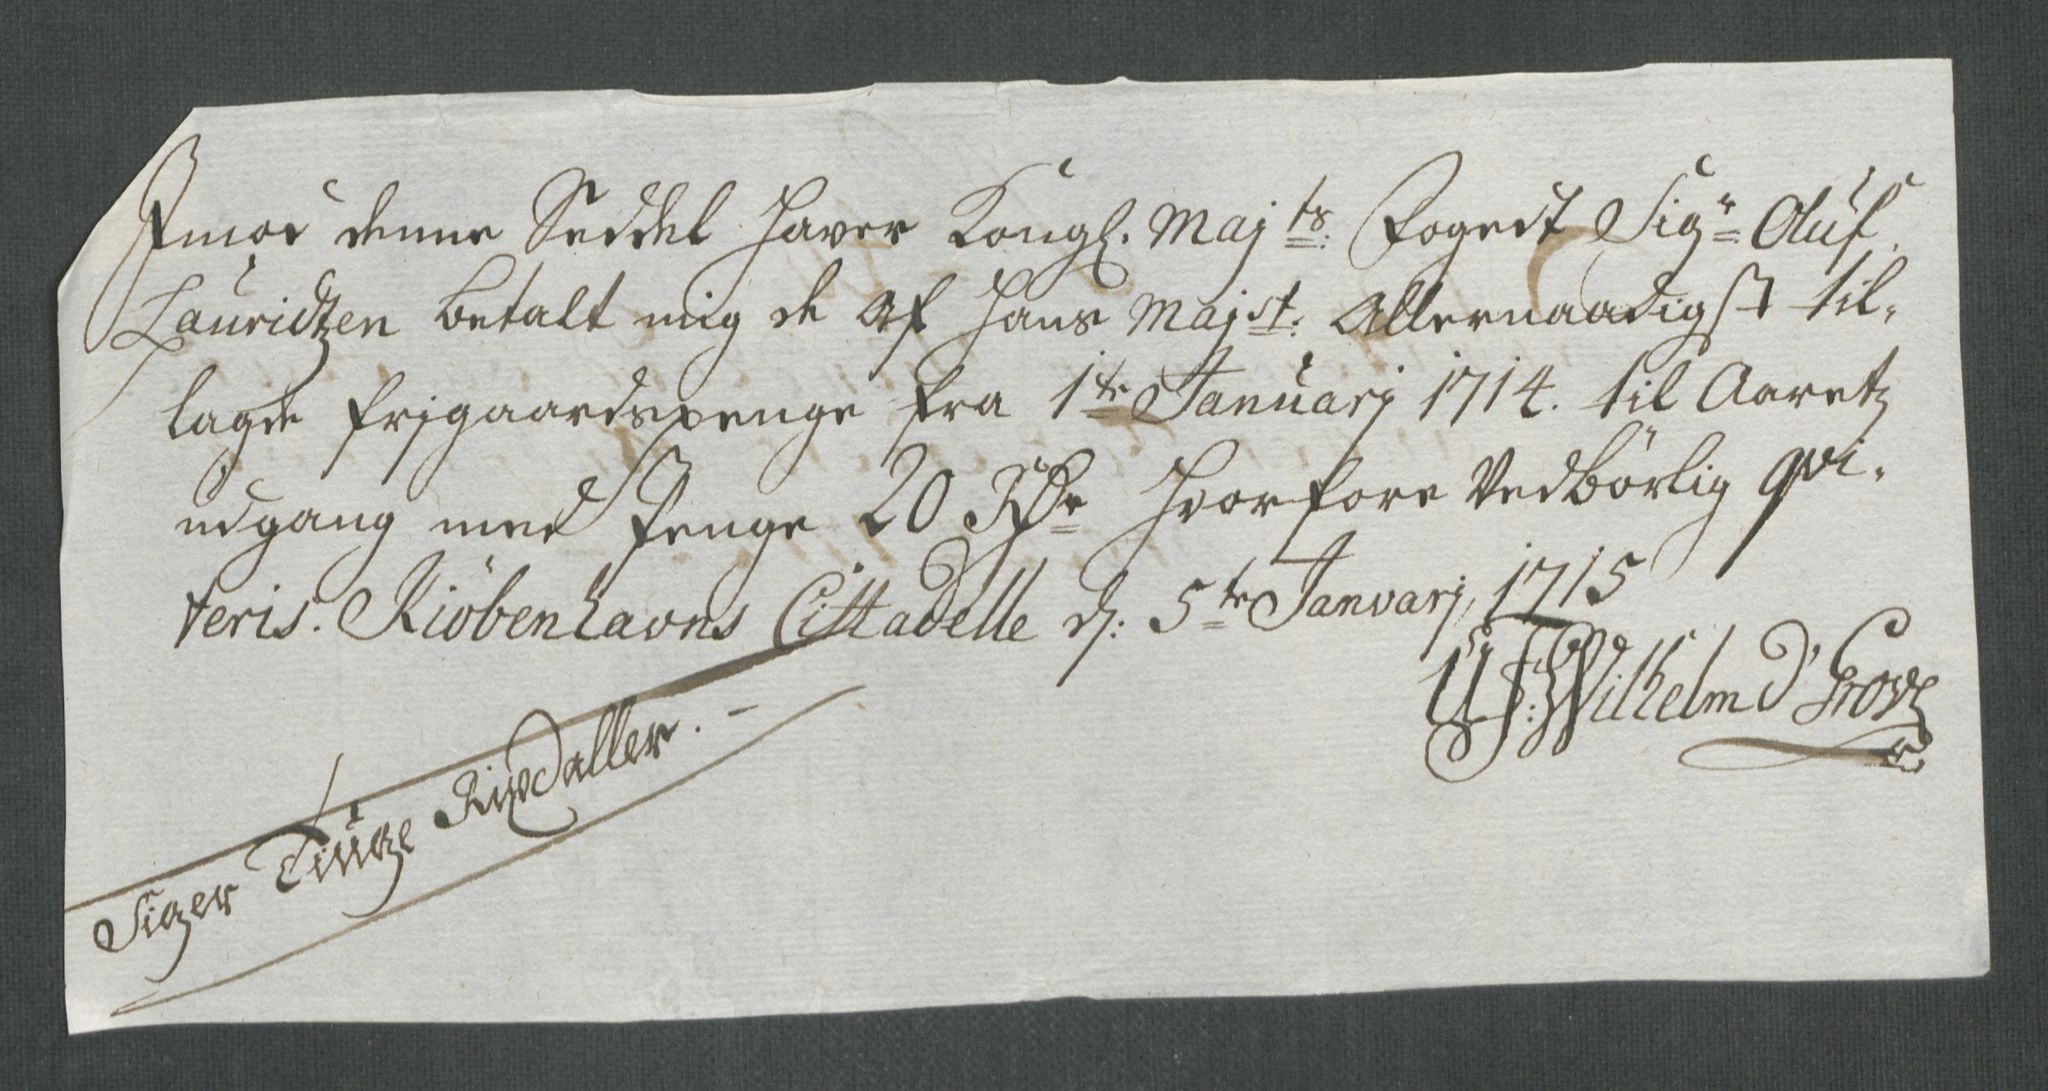 Imod denne Seddel haver Kongl. Majts: Fogedt Sigr Oluf
Lauridtzen betalt mig de af Hans Majst: Allernaadigst til-
lagde frjgaardspenge fra 1te Januarj 1714. til Aaretz
udgang med Penge 20 Rdr hvorfore Vedbörlig qvi-
teris. Kiöbenhavns Cittadelle d: 5te Janvarj 1715
Wilhelm d'
Siger Tiuge Rixdaller. -